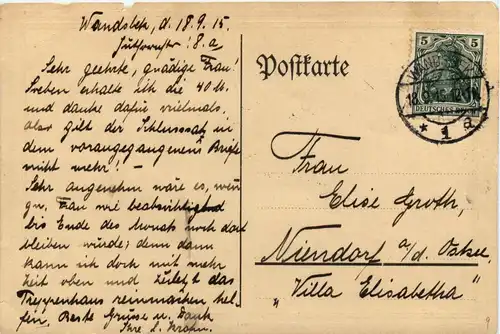 Wandsbek, d. 18.9.15.
8.a
Sehr geehrte, gnädige Frau!
Soeben erhalte ich die 40 M.
und danke dafür vielmals,
also gilt der Schlusssatz in
dem vorangegangenen Briefe
nicht mehr! –
Sehr angenehm wäre es, wenn
gn. Frau wie beabsichtigend
bis Ende des Monats noch dort
bleiben würde; denn dann
kann ich doch mit mehr
Zeit oben und zuletzt das
Treppenhaus reinmachen hel-
fen. Beste Grüsse u. Dank
Ihre
Postkarte
5
DEUTSCHES REICH
18.
* 1 a
Frau
Elise Groth,
Niendorf a/d. Ostsee.
"Villa Elisabetha"